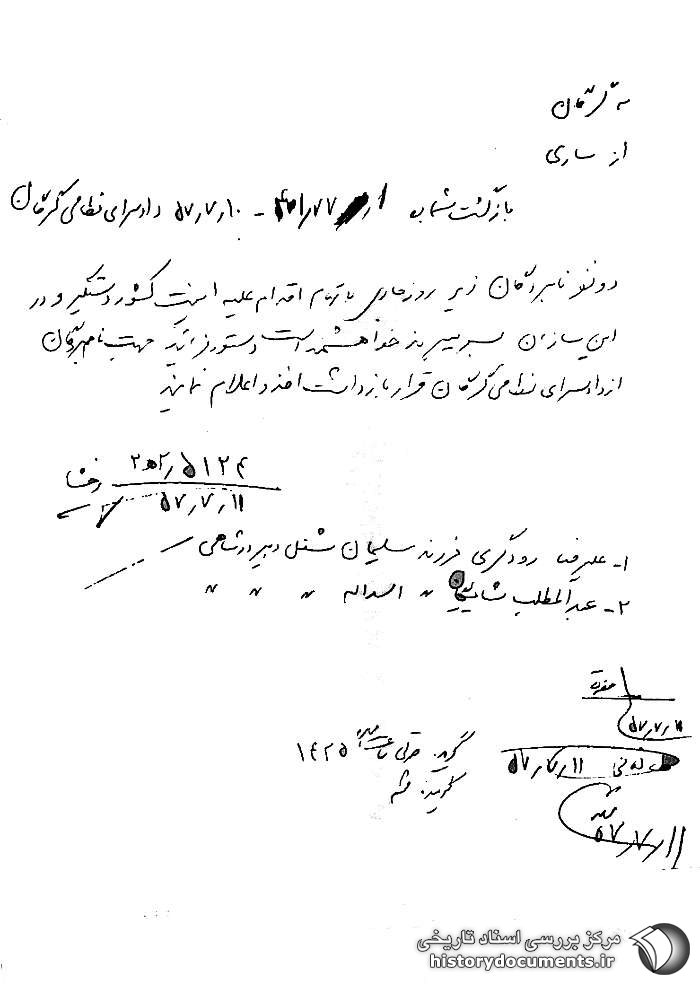 به گرگان
از ساری
بازگشت شماره 401/77 - 57/7/10 دادسرای نظامی گرگان
دو نفر نامبردگان زیر روز جاری با تهام اقدام علیه امنیت کشور دستگیر و در
این سازمان بسر میبرند خواهشمند است دستور فرمائید جهت نامبردگان
از دادسرای نظامی گرگان قرار بازداشت اخذ و اعلام نمایند
۵۱۲۴/
۵۷/۷/۱۱
۱- علیرضا رودگری فرزند سلیمان شغل دبیر در شاهی
۲- عبدالمطلب اسداله " " "
۵۷/۷/۱۱
۵۷/۷/۱۱
گیرنده ساعت ۱۴۲۵
گوینده
۵۷/۷/۱۱
مرکز بررسی اسناد تاریخی
historydocuments.ir